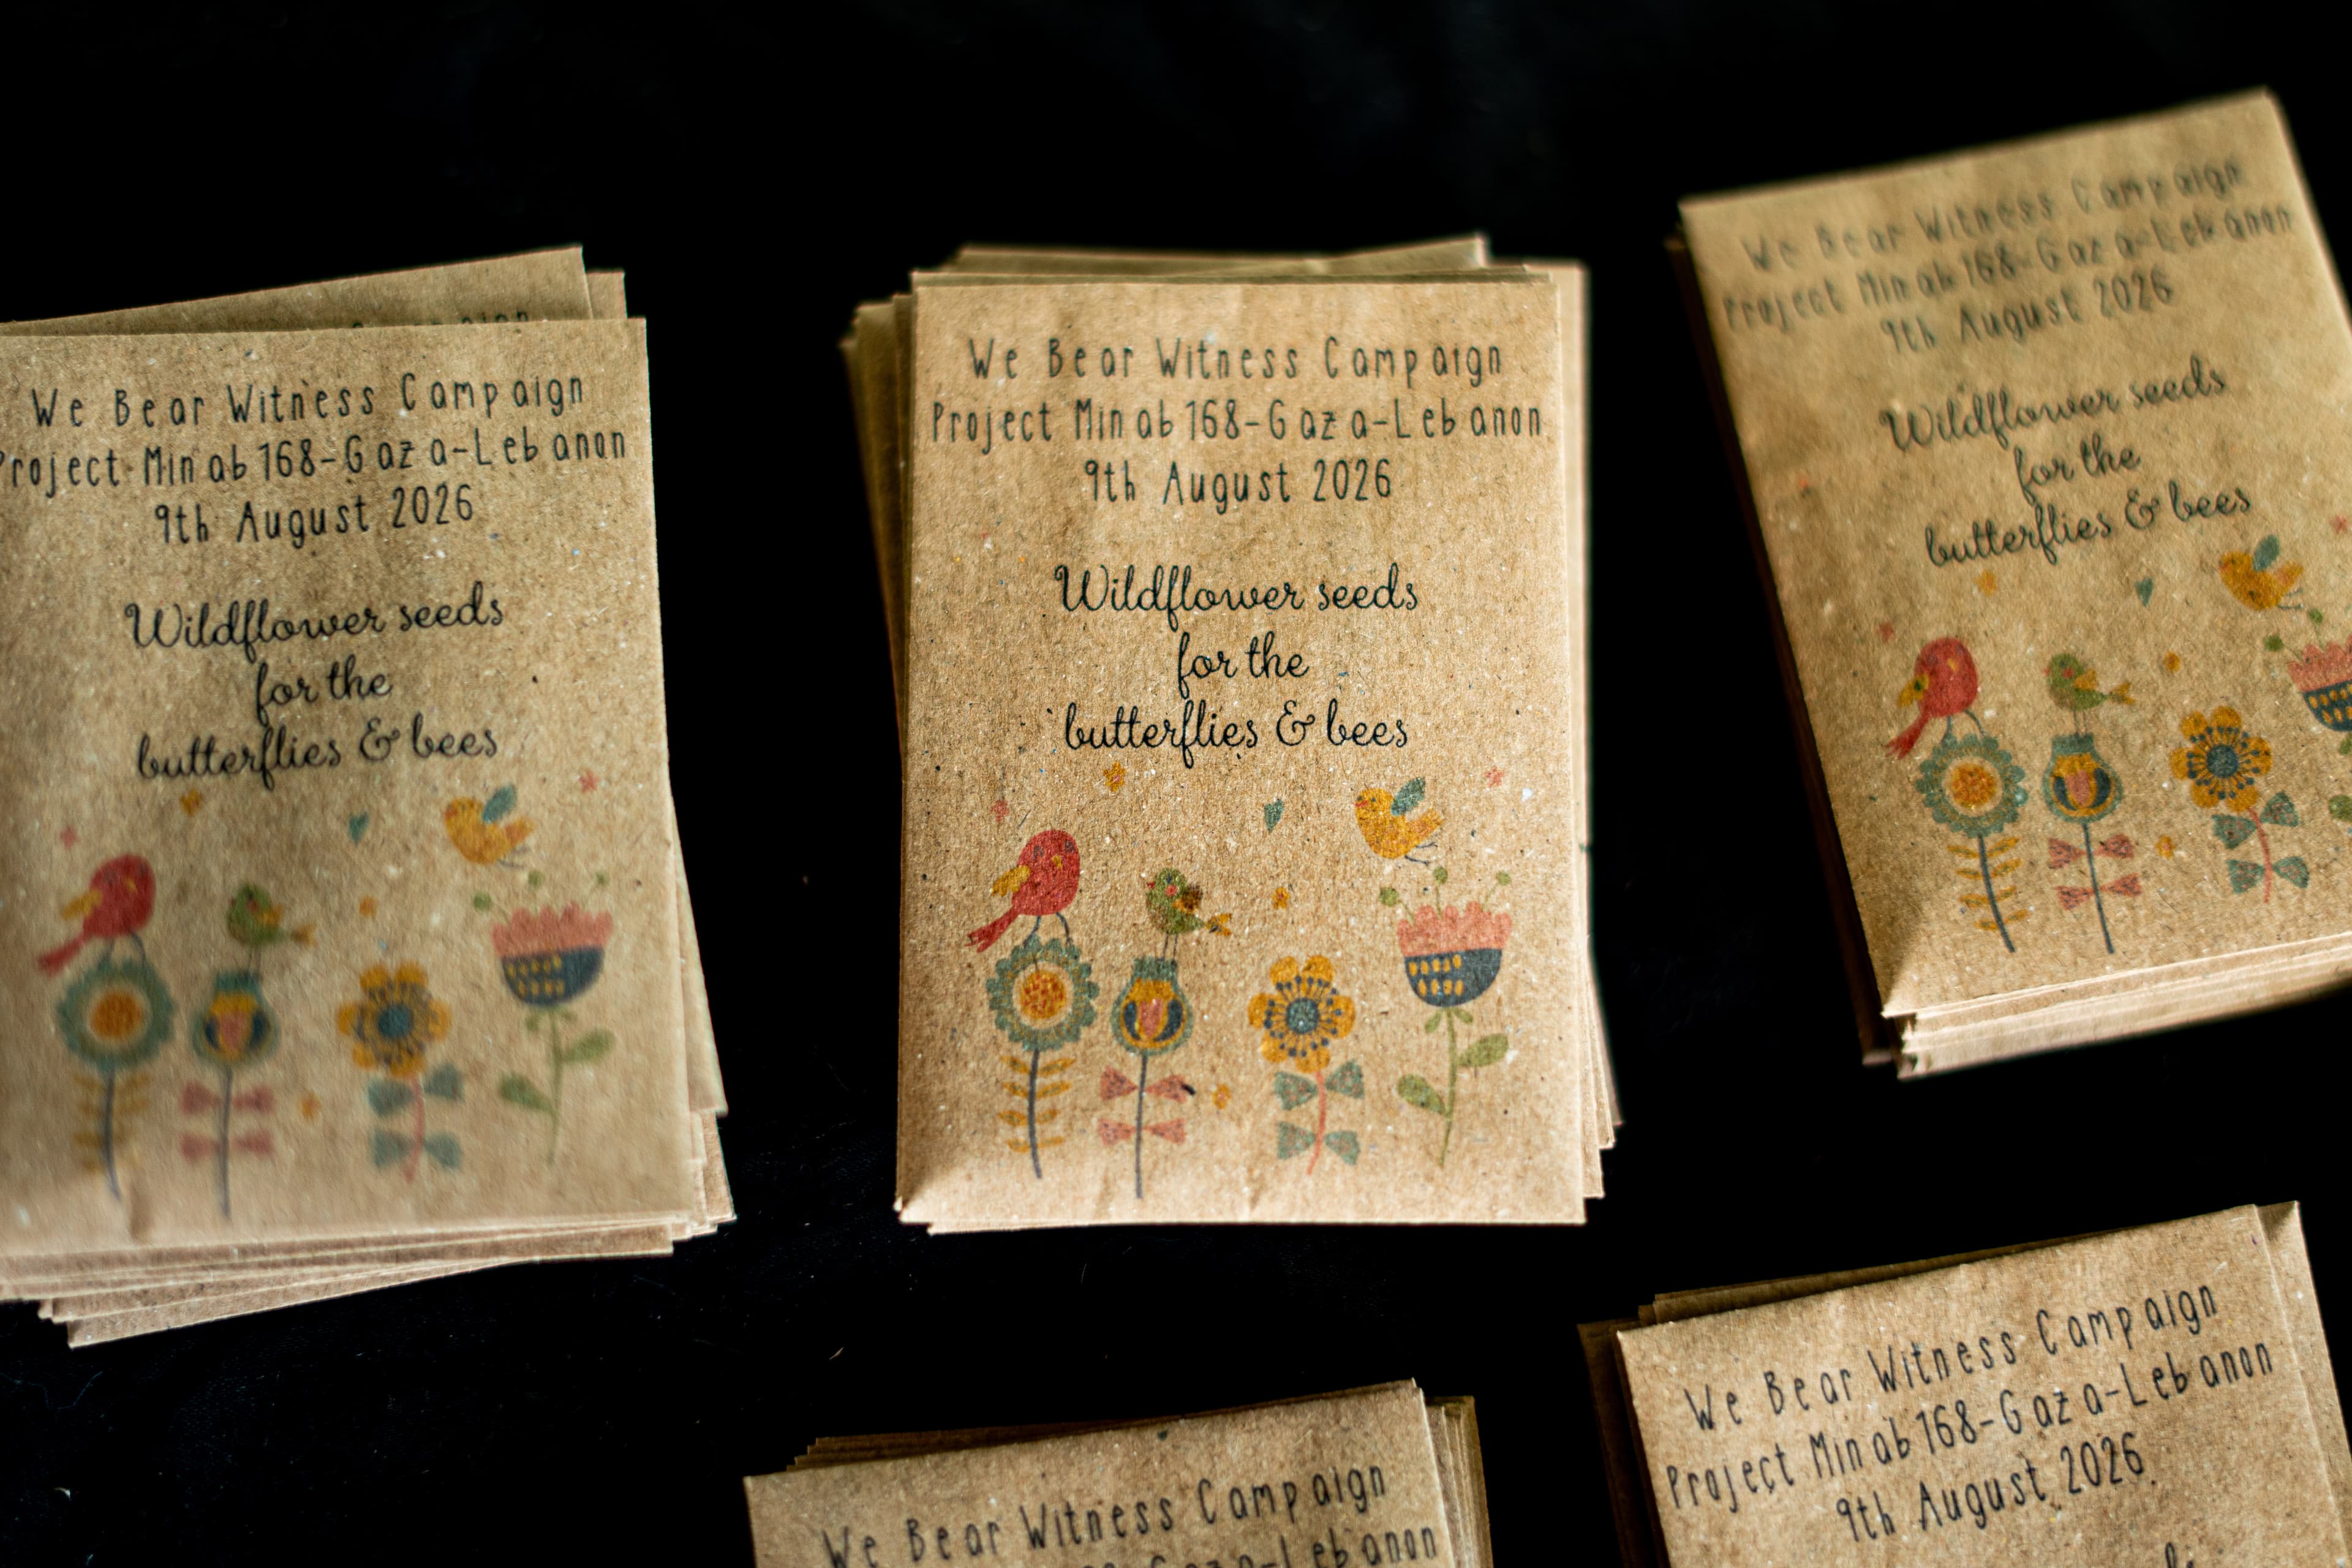 We Bear Witness Campaign
Project Minab 168-Gaza-Lebanon
9th August 2026
Wildflower seeds
for the
butterflies & bees
We Bear Witness Campaign
Project Minab 168-Gaza-Lebanon
9th August 2026
Wildflower seeds
for the
butterflies & bees
We Bear Witness Campaign
Project Minab 168-Gaza-Lebanon
9th August 2026
Wildflower seeds
for the
butterflies & bees
We Bear Witness Campaign
Gaza-Lebanon
We Bear Witness Campaign
Project Minab 168-Gaza-Lebanon
9th August 2026